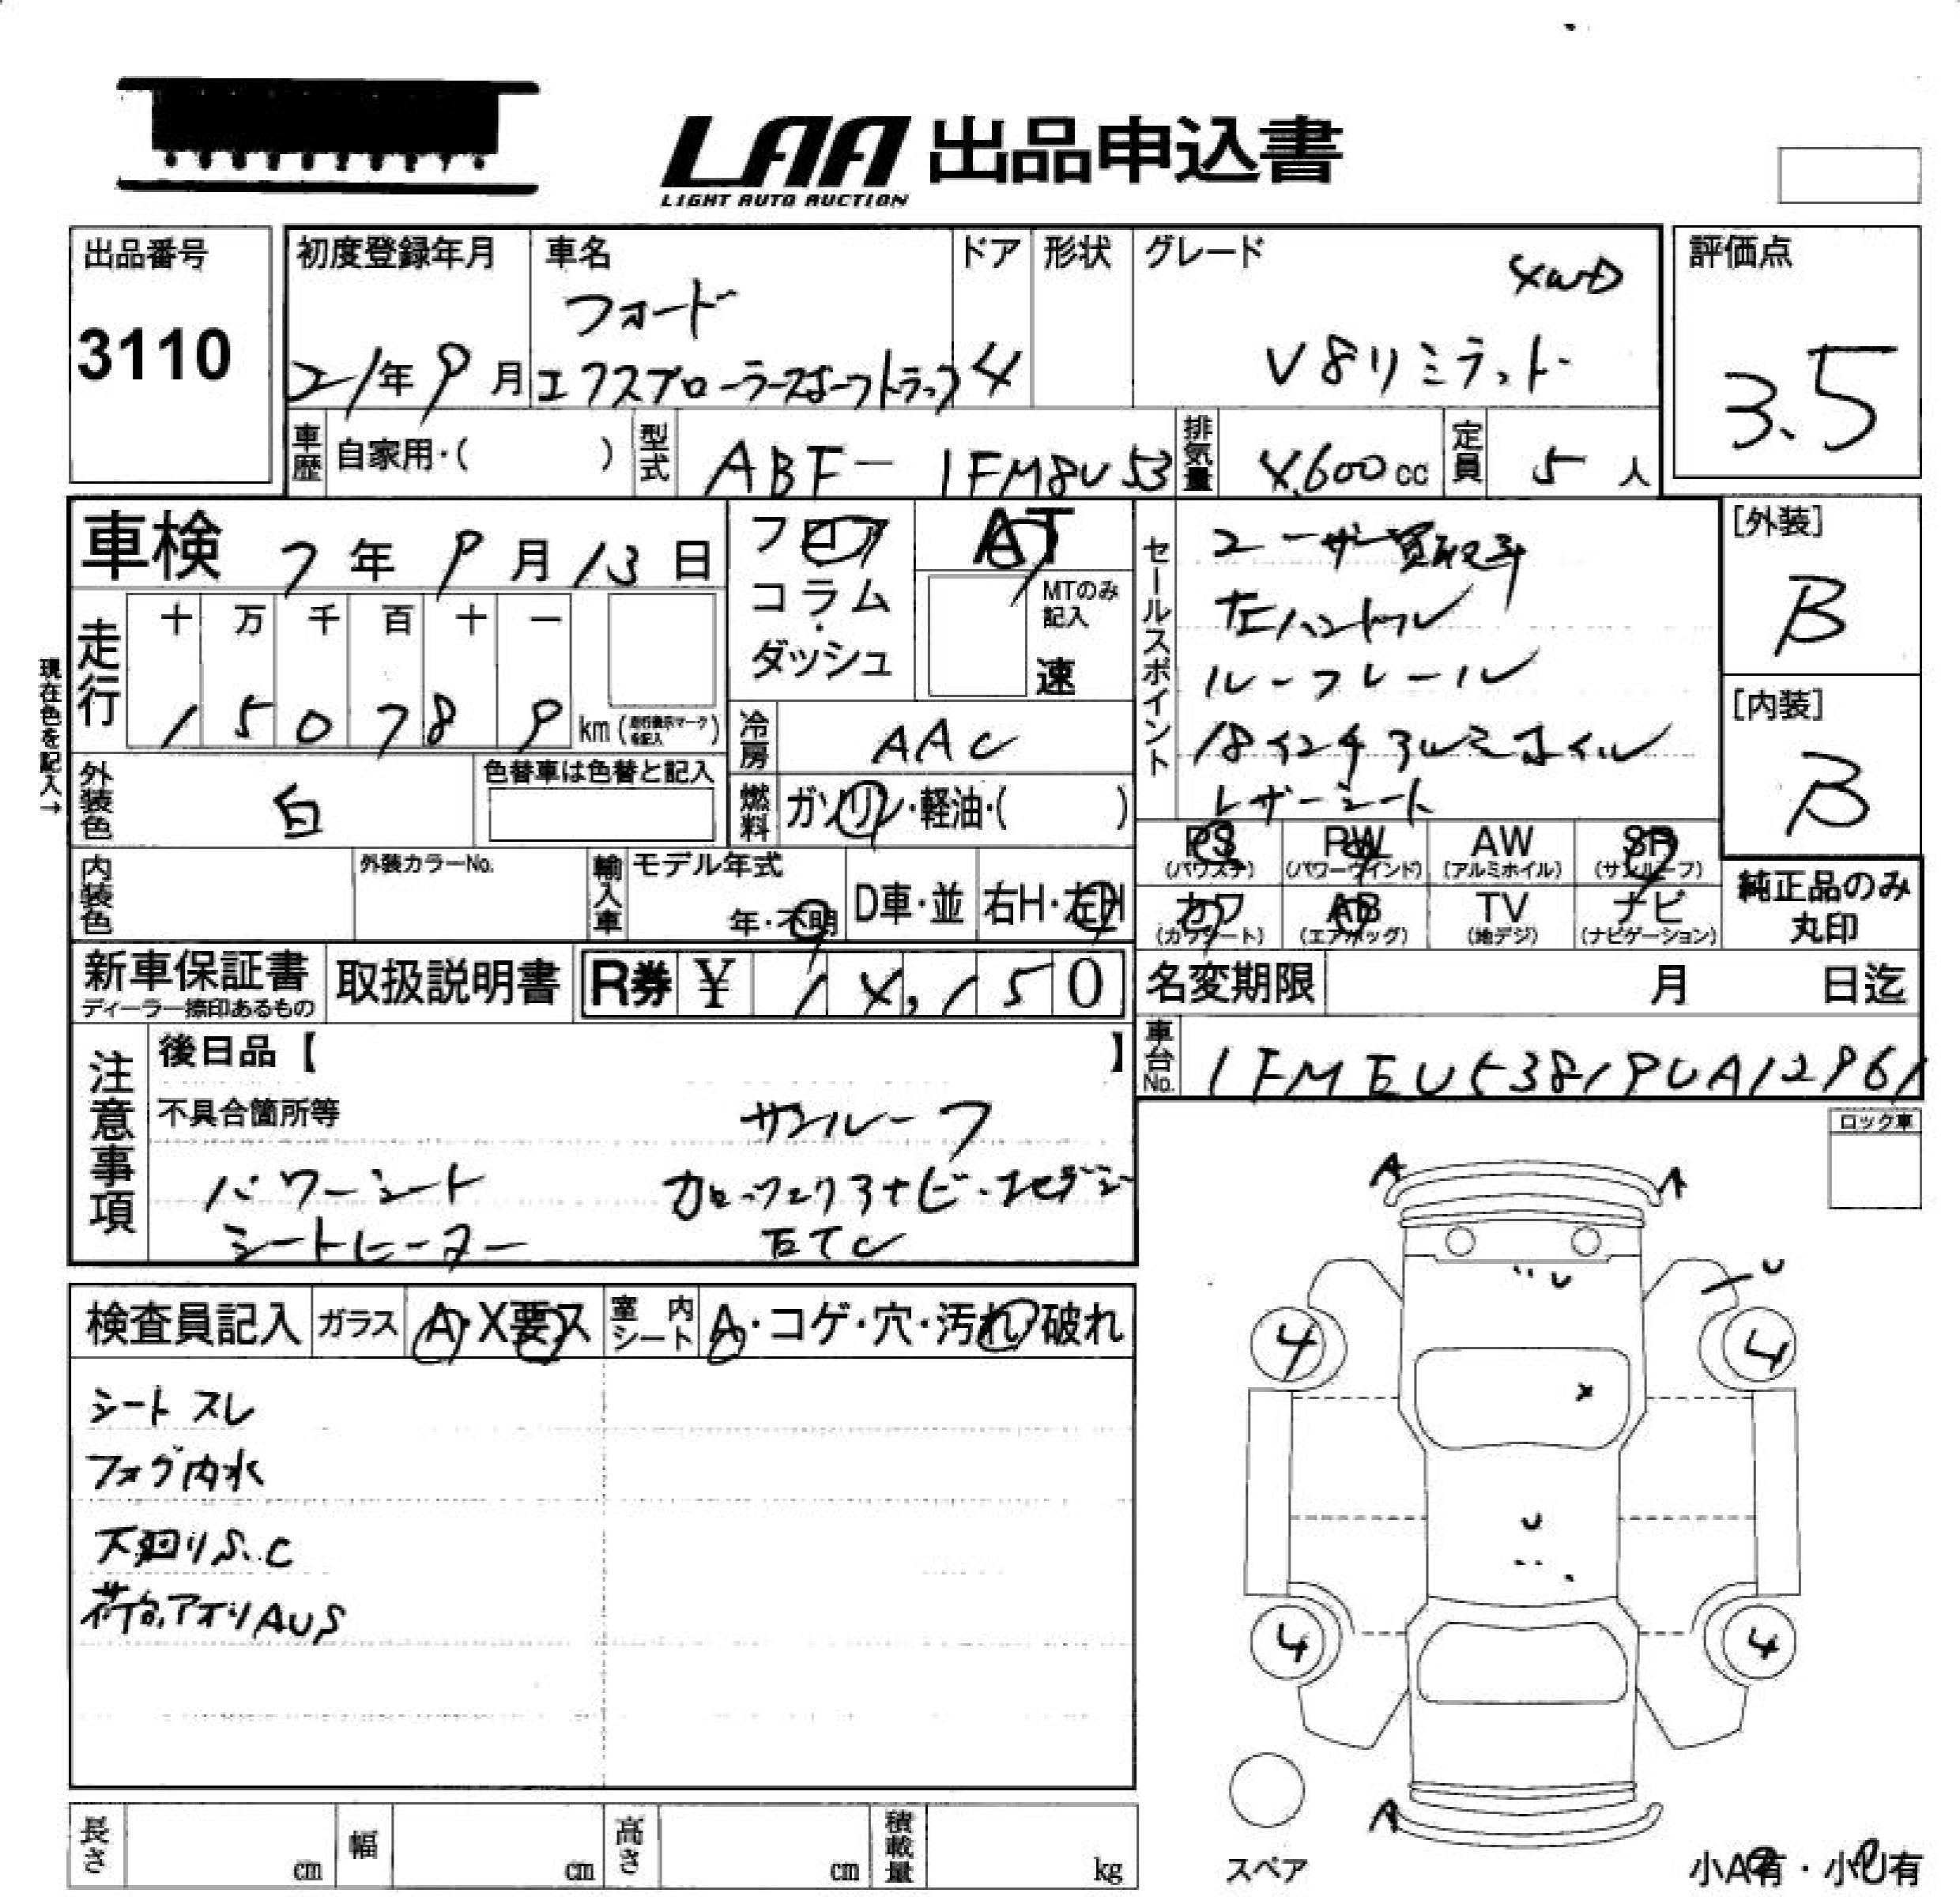 LAA 出品申込書
LIGHT AUTO AUCTION
出品番号
3110
初度登録年月
21年 9月
車名
フォード
エクスプローラースポーツトラック
ドア
4
形状
グレード
4WD
V8リミテッド
評価点
3.5
車歴 自家用・( )
型式 ABF-1FM8U53
排気量 4,600cc
定員 5人
車検 7年 9月 13日
フロア
コラム
・
ダッシュ
AT
MTのみ記入
速
セールスポイント
ユーザー買取車
左ハンドル
ルーフレール
18インチアルミホイル
レザーシート
[外装]
B
[内装]
B
現在色を記入→
走行
十 万 千 百 十 一
1 5 0 7 8 9 km
冷房 AAC
外装色 白
色替車は色替と記入
燃料 ガソリン・軽油・( )
PS (パワステ)
PW (パワーウインド)
AW (アルミホイル)
SR (サンルーフ)
カワ (カワシート)
AB (エアバッグ)
TV (地デジ)
ナビ (ナビゲーション)
純正品のみ
丸印
内装色
外装カラーNo.
輸入車
モデル年式
年・不明
D車・並
右H・左H
新車保証書
ディーラー捺印あるもの
取扱説明書
R券 ¥ 14,150
名変期限 月 日迄
車台No. 1FMEU53819UA12961
注意事項
後日品【 】
不具合箇所等
サンルーフ
パワーシート
カロッツェリアナビ・地デジ
シートヒーター
ETC
ロック車
検査員記入
ガラス A・X要ス
室内シート A・コゲ・穴・汚れ・破れ
シート スレ
フォグ内水
下廻りS.C
荷台アオリAUS
A A
U U
4 4
X
U
4 4
A
スペア
小A有・小U有
長さ cm
幅 cm
高さ cm
積載量 kg